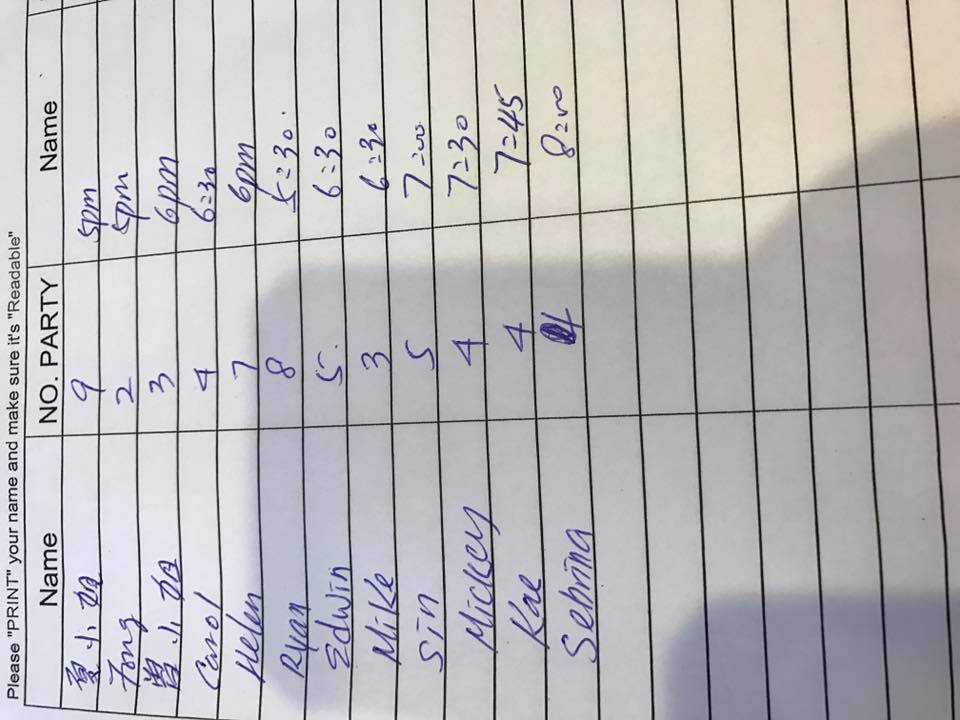 Please "PRINT" your name and make sure it's "Readable"
Name NO. PARTY Name
夏小姐 9 5pm
Fong 2 5pm
曾小姐 3 6pm
Carol 4 6=30
Helen 7 6pm
Ryan 8 5=30.
Edwin 5. 6=30
Mike 3 6=30
Sin 5 7=00
Mickey 4 7=30
Kae 4 7=45
4 8=00